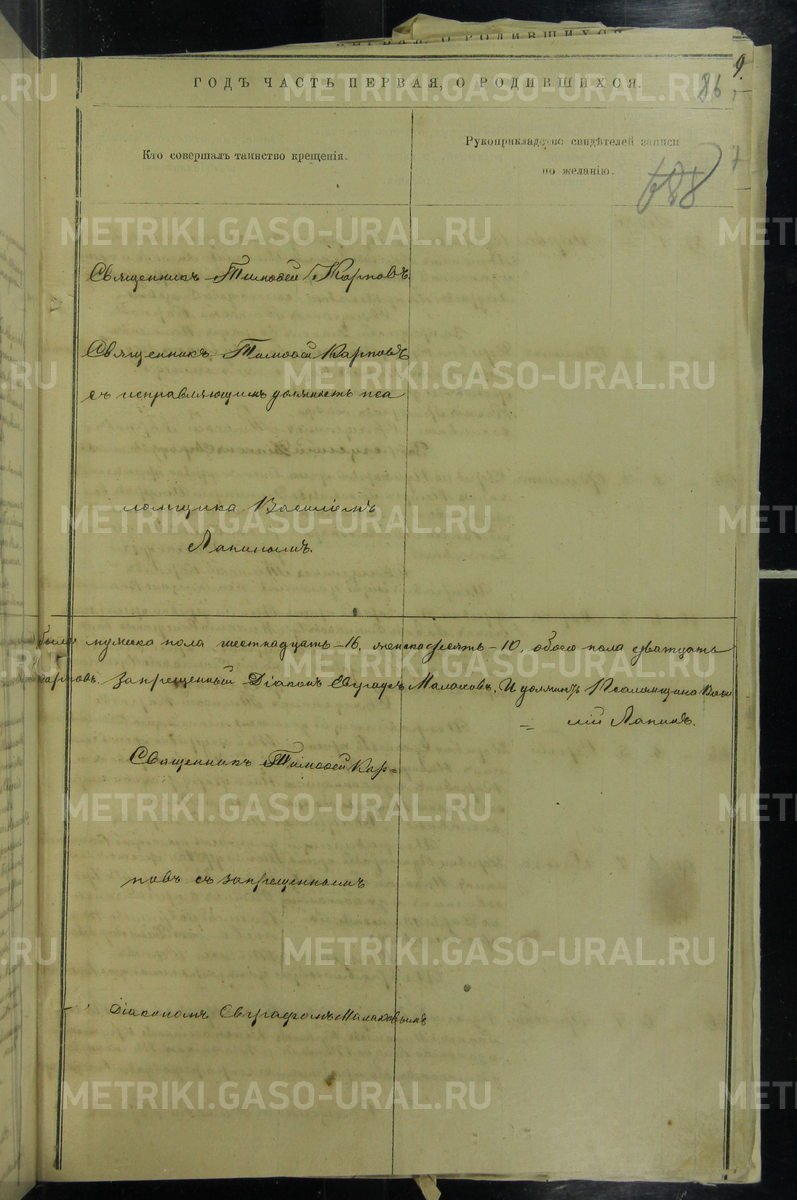 ГОДЪ ЧАСТЬ ПЕРВАЯ, О РОДИВШИХСЯ.
9.
86
Кто совершалъ таинство крещенія.
Рукоприкладство свидѣтелей записи
по желанію.
Священникъ Тимоѳей Карповъ.
Священникъ Тимоѳей Карповъ
съ исправляющимъ должность пса
ломщика Василіемъ
Лапинымъ.
мужска пола шестнадцать – 16, женска десять – 10, обоего пола двадцать
Запрещенный Діаконъ Евграфъ Малаховъ. И должн. Псаломщика Васи
лій Лапинъ.
Священникъ Тимоѳей Кар=
повъ съ запрещеннымъ
Діакономъ Евграфомъ Малаховымъ
METRIKI.GASO-URAL.RU